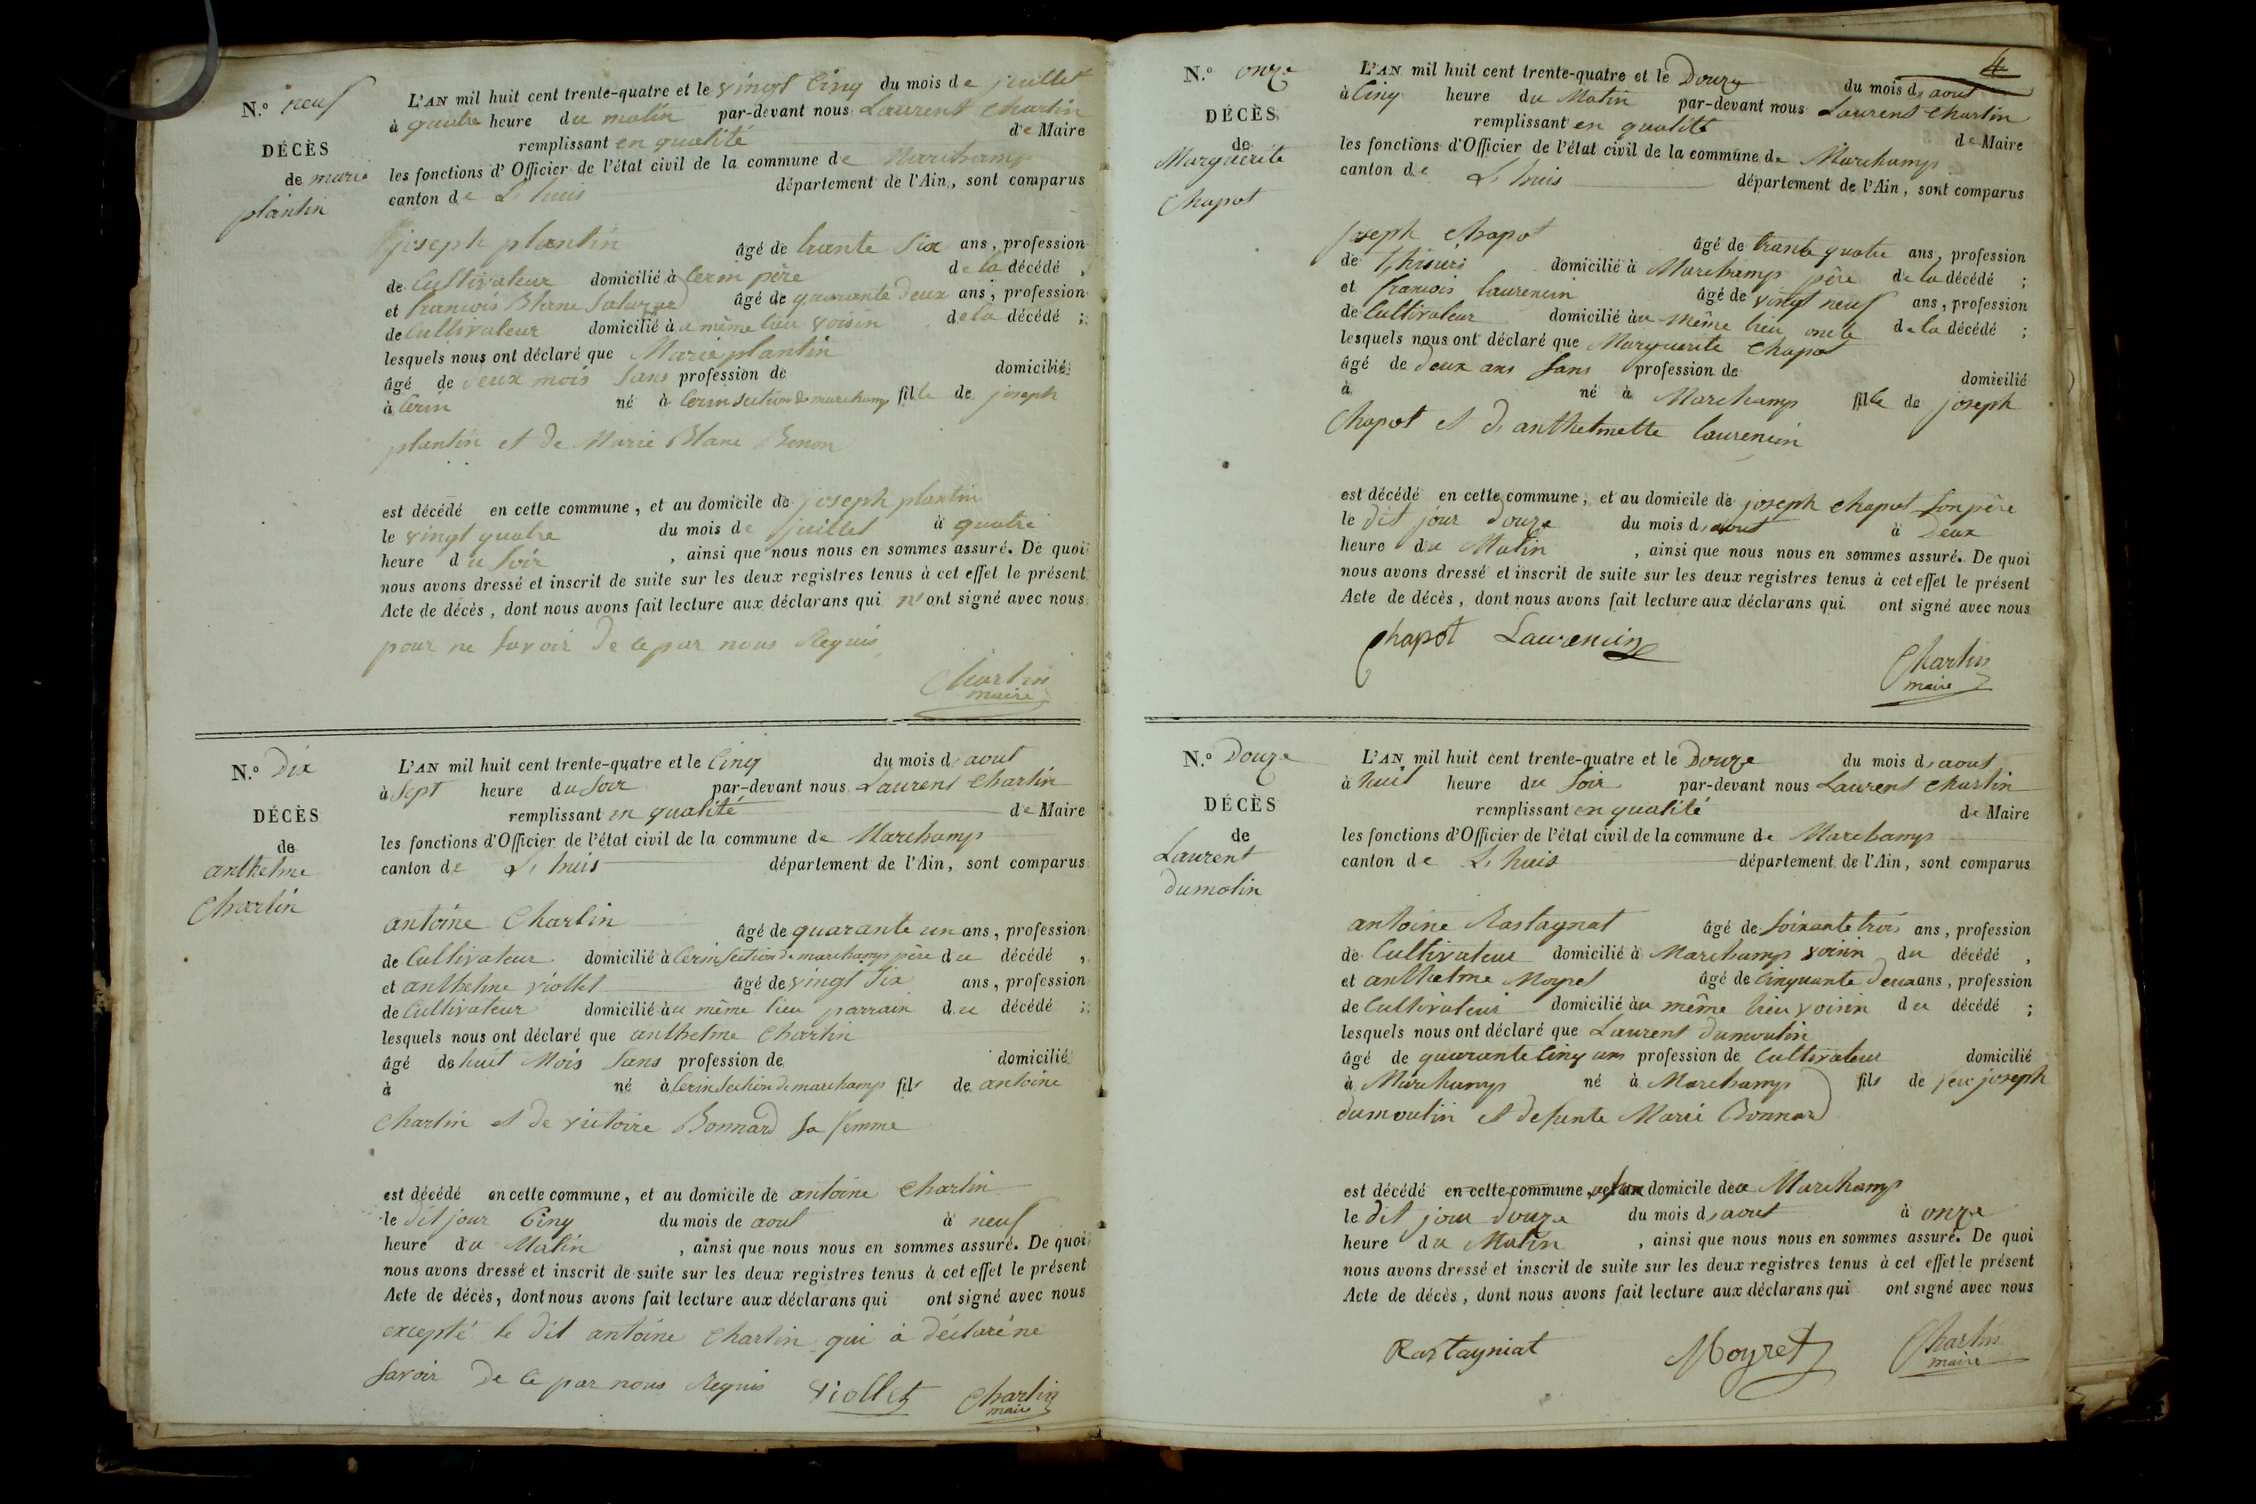 N.º neuf
DÉCÈS
de marie
plantin
L'AN mil huit cent trente-quatre et le vingt Cinq du mois de juillet
à quatre heure du matin par-devant nous Laurent Charlin
remplissant en qualité de Maire
les fonctions d'Officier de l'état civil de la commune de Marchamp
canton de L huis département de l'Ain, sont comparus
joseph plantin âgé de trante Six ans, profession
de Cultivateur domicilié à Cerin père de la décédé,
et francois Blanc âgé de quarante deux ans, profession
de Cultivateur domicilié àu même lieu voisin de la décédé;
lesquels nous ont déclaré que Marie plantin
âgé de deux mois Sans profession de domicilié
à Cerin né à Cerin section de marchamp fille de joseph
plantin et de Marie Blanc
est décédé en cette commune, et au domicile de joseph plantin
le vingt quatre du mois de juillet à quatre
heure du Soir, ainsi que nous nous en sommes assuré. De quoi
nous avons dressé et inscrit de suite sur les deux registres tenus à cet effet le présent
Acte de décès, dont nous avons fait lecture aux déclarans qui n'ont signé avec nous
pour ne Savoir de ce par nous Requis
Charlin
maire
N.º Dix
DÉCÈS
de
anthelme
Charlin
L'AN mil huit cent trente-quatre et le Cinq du mois d aout
à Sept heure du Soir par-devant nous Laurent Charlin
remplissant en qualité de Maire
les fonctions d'Officier de l'état civil de la commune de Marchamp
canton de L huis département de l'Ain, sont comparus
antoine Charlin âgé de quarante un ans, profession
de Cultivateur domicilié à Cerin Section de marchamp père du décédé,
et anthelme viollet âgé de vingt Six ans, profession
de Cultivateur domicilié àu même lieu parrain du décédé;
lesquels nous ont déclaré que anthelme Charlin
âgé de huit Mois Sans profession de domicilié
à né à Cerin Section de marchamp fils de antoine
Charlin et de victoire Bonnard Sa femme
est décédé en cette commune, et au domicile de antoine Charlin
le dit jour Cinq du mois de aout à neuf
heure du Matin, ainsi que nous nous en sommes assuré. De quoi
nous avons dressé et inscrit de suite sur les deux registres tenus à cet effet le présent
Acte de décès, dont nous avons fait lecture aux déclarans qui ont signé avec nous
excepté le dit antoine Charlin qui à déclaré ne
Savoir de ce par nous Requis viollet Charlin
maire
4
N.º onze
DÉCÈS
de
Marguerite
Chapot
L'AN mil huit cent trente-quatre et le Douze du mois d aout
à Cinq heure du Matin par-devant nous Laurent Charlin
remplissant en qualité de Maire
les fonctions d'Officier de l'état civil de la commune de Marchamp
canton de L huis département de l'Ain, sont comparus
joseph Chapot âgé de trante quatre ans, profession
de domicilié à Marchamp père de la décédé;
et francois laurencin âgé de vingt neuf ans, profession
de Cultivateur domicilié àu même lieu oncle de la décédé;
lesquels nous ont déclaré que Marguerite Chapot
âgé de deux ans Sans profession de domicilié
à né à Marchamp fille de joseph
Chapot et d anthelmette laurencin
est décédé en cette commune, et au domicile de joseph Chapot Son père
le dit jour douze du mois d aout à Deux
heure du Matin, ainsi que nous nous en sommes assuré. De quoi
nous avons dressé et inscrit de suite sur les deux registres tenus à cet effet le présent
Acte de décès, dont nous avons fait lecture aux déclarans qui ont signé avec nous
Chapot Laurencin
Charlin
maire
N.º Douze
DÉCÈS
de
Laurent
dumolin
L'AN mil huit cent trente-quatre et le Douze du mois d aout
à huit heure du Soir par-devant nous Laurent Charlin
remplissant en qualité de Maire
les fonctions d'Officier de l'état civil de la commune de Marchamp
canton de L huis département de l'Ain, sont comparus
antoine Rastagnat âgé de Soixante trois ans, profession
de Cultivateur domicilié à Marchamp voisin du décédé,
et anthelme Moyret âgé de Cinquante deux ans, profession
de Cultivateur domicilié àu même lieu voisin du décédé;
lesquels nous ont déclaré que Laurent dumoulin
âgé de quarante Cinq ans profession de Cultivateur domicilié
à Marchamp né à Marchamp fils de feu joseph
dumoulin et defunte Marie Bonnard
est décédé en cette commune, domicile de Marchamp
le dit jour douze du mois d aout à onze
heure du Matin, ainsi que nous nous en sommes assuré. De quoi
nous avons dressé et inscrit de suite sur les deux registres tenus à cet effet le présent
Acte de décès, dont nous avons fait lecture aux déclarans qui ont signé avec nous
Rastayniat Moyret Charlin
maire